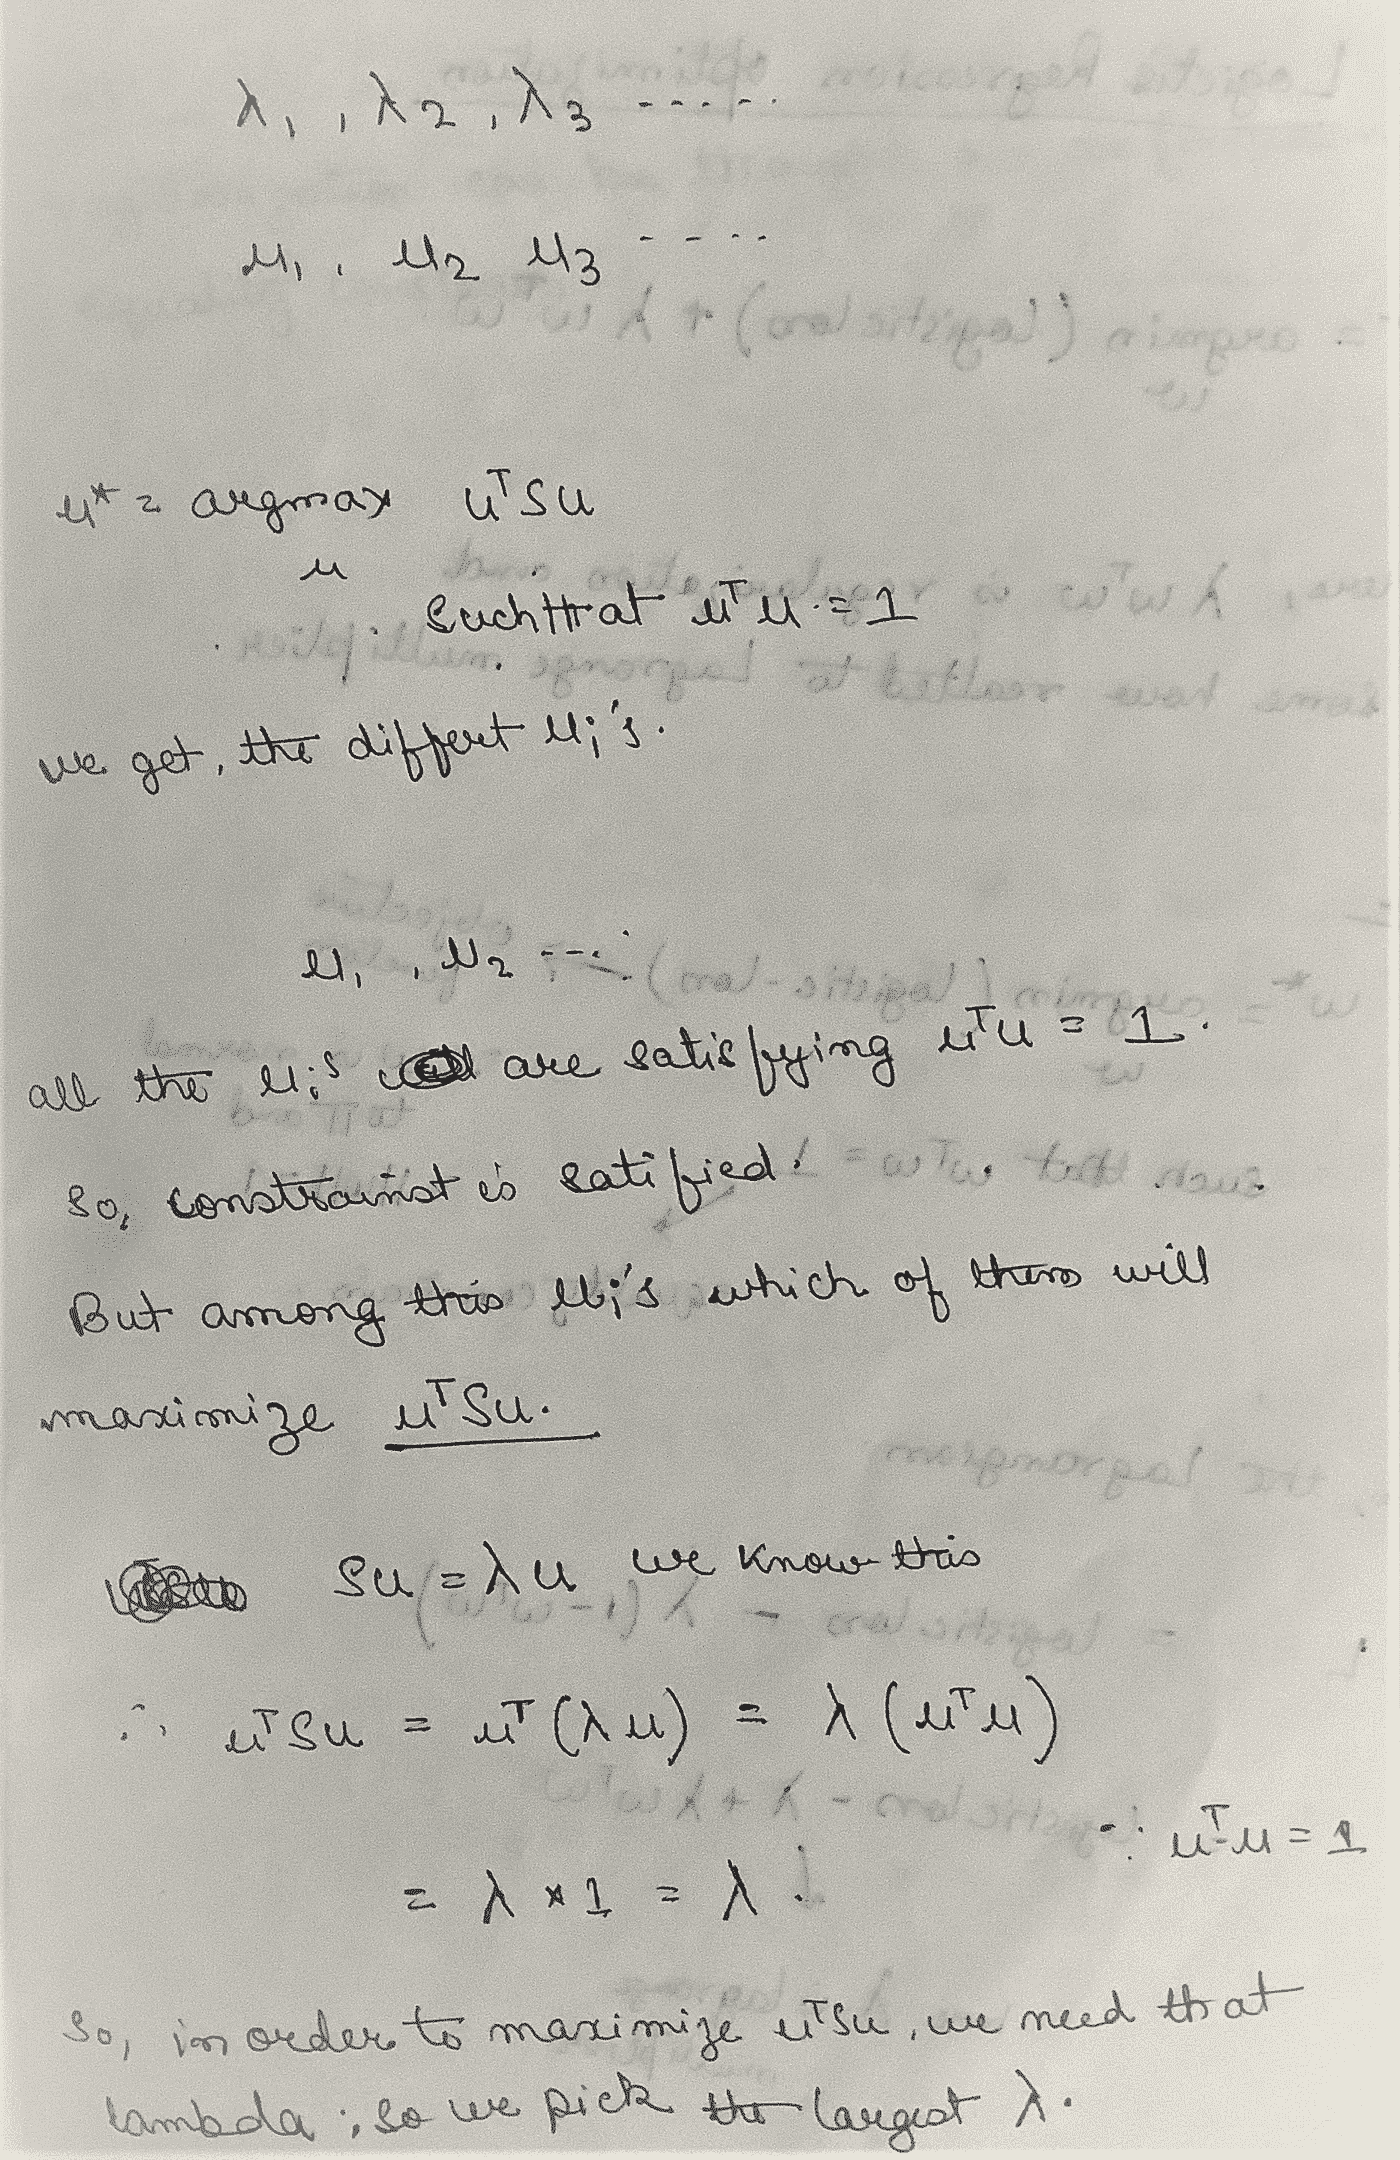 λ₁, λ₂, λ₃ -----
u₁, u₂ u₃ ----
u* = argmax uᵀSu
u
Such that uᵀu = 1
we get, the differt uᵢ's.
u₁, u₂ ---
all the uᵢs are satisfying uᵀu = 1.
So, constrainst is satified.
But among this uᵢ's which of them will
maximize uᵀSu.
Su = λu we know this
∴ uᵀSu = uᵀ(λu) = λ(uᵀu)
∵ uᵀu = 1
= λ * 1 = λ.
So, in order to maximize uᵀSu, we need that
lambda; so we pick the largest λ.